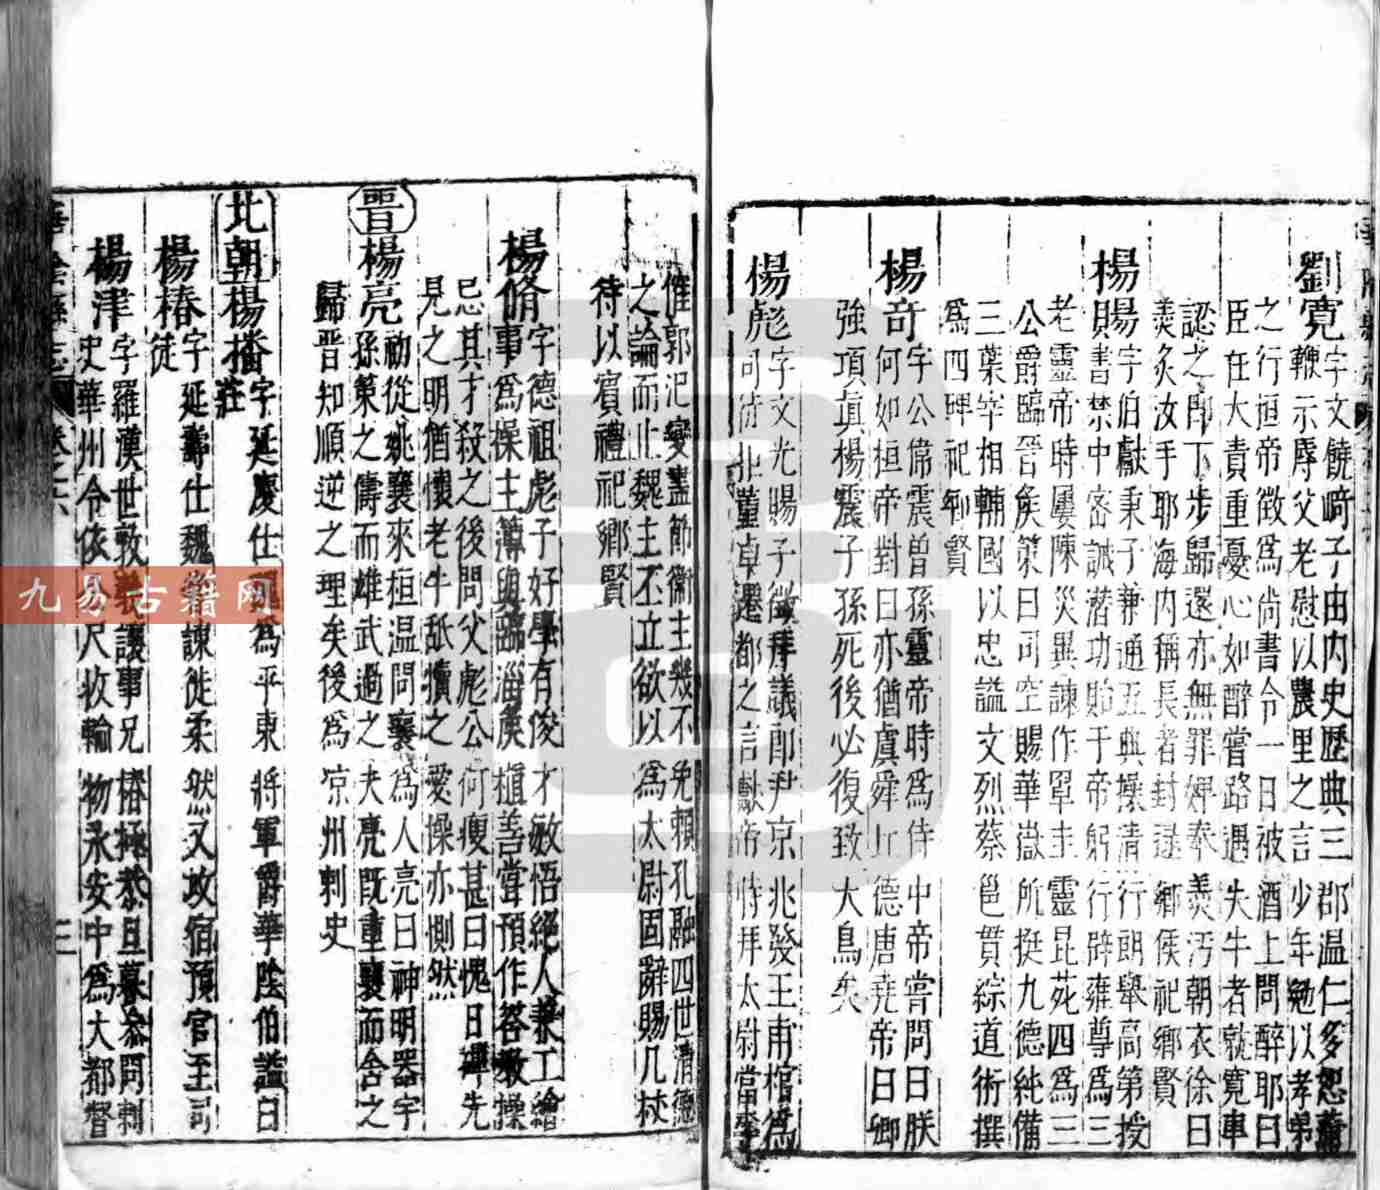 劉寬字文饒崎子由內史歷典三郡温仁多恕蒲
鞭示辱父老慰以農里之言少年勉以孝弟
之行桓帝徵為尚書令一日被酒上問醉耶曰
臣在大責重憂心如醉嘗路遇失牛者就寬車
認之即下步歸還亦無罪婢奉羮汚朝衣徐曰
羮炙汝手耶海內稱長者封逯鄉侯祀鄉賢
楊賜字伯獻秉子兼通五典操清行朗舉高第授
書禁中密誠潜功貽于帝躬行辟雍尊為三
老靈帝時屢陳災異諫作罼圭靈昆苑四為三
公爵臨晉矦策曰司空賜華嶽所挺九德純備
三葉宰相輔國以忠謚文烈蔡邕貫綜道術撰
為四碑祀鄉賢
楊奇字公偉震曾孫靈帝時為侍中帝嘗問曰朕
何如桓帝對曰亦猶虞舜比德唐堯帝曰卿
強項真楊震子孫死後必復致大鳥矣
楊彪字文光賜子徵拜議郎尹京兆發王甫棺德
可 拒董卓遷都之言獻帝時拜太尉當李
傕郭汜變盡節衞主幾不免賴孔融四世清德
之論而止魏主丕立欲以為太尉固辭賜几杖
待以賓禮祀鄉賢
楊脩字德祖彪子好學有俊才敏悟絕人兼工繪
事為操主簿與臨淄矦植善嘗預作答教操
忌其才殺之後問父彪公何瘦甚曰愧日磾先
見之明猶懷老牛舐犢之愛操亦惻然
晉
楊亮初從姚襄來桓温問襄為人亮曰神明器宇
孫策之儔而雄武過之夫亮既重襄而舍之
歸晉知順逆之理矣後為凉州刺史
北朝
楊播字延慶仕魏為平東將軍爵華陰伯謚曰
莊
楊椿字延壽仕魏 諫徙柔然又攻宿預官至司
徒
楊津字羅漢世敦義讓事兄椿極恭旦暮參問刺
史華州令依公尺收輸物永安中為大都督
華陰縣志 卷之六 三
九易古籍网